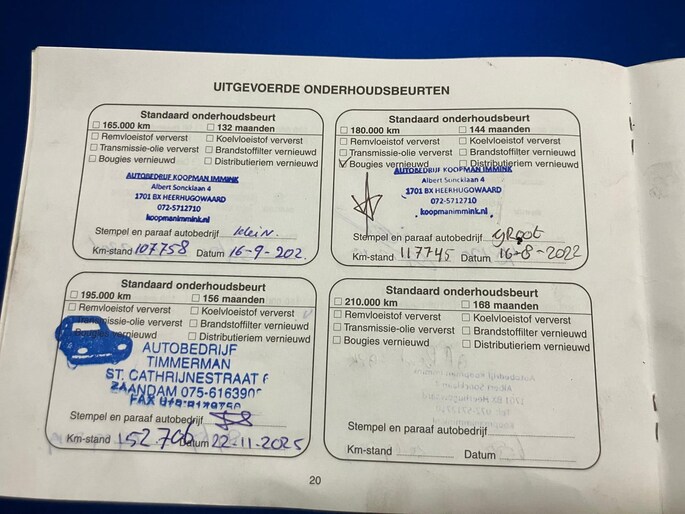 UITGEVOERDE ONDERHOUDSBEURTEN
Standaard onderhoudsbeurt
165.000 km 132 maanden
Remvloeistof ververst Koelvloeistof ververst
Transmissie-olie ververst Brandstoffilter vernieuwd
Bougies vernieuwd Distributieriem vernieuwd
AUTOBEDRIJF KOOPMAN IMMINK
Albert Soncklaan 4
1701 BX HEERHUGOWAARD
072-5712710
koopmanimmink.nl
Stempel en paraaf autobedrijf klein.
Km-stand 107758 Datum 16-9-202
Standaard onderhoudsbeurt
180.000 km 144 maanden
Remvloeistof ververst Koelvloeistof ververst
Transmissie-olie ververst Brandstoffilter vernieuwd
Bougies vernieuwd Distributieriem vernieuwd
AUTOBEDRIJF KOOPMAN IMMINK
Albert Soncklaan 4
1701 BX HEERHUGOWAARD
072-5712710
koopmanimmink.nl
Stempel en paraaf autobedrijf groot
Km-stand 117745 Datum 16-8-2022
Standaard onderhoudsbeurt
195.000 km 156 maanden
Remvloeistof ververst Koelvloeistof ververst
Transmissie-olie ververst Brandstoffilter vernieuwd
Bougies vernieuwd Distributieriem vernieuwd
AUTOBEDRIJF
TIMMERMAN
ST. CATHRIJNESTRAAT
ZAANDAM 075-616390
FAX
Stempel en paraaf autobedrijf
Km-stand 152.706 Datum 22-11-2025
Standaard onderhoudsbeurt
210.000 km 168 maanden
Remvloeistof ververst Koelvloeistof ververst
Transmissie-olie ververst Brandstoffilter vernieuwd
Bougies vernieuwd Distributieriem vernieuwd
Stempel en paraaf autobedrijf
Km-stand Datum
20